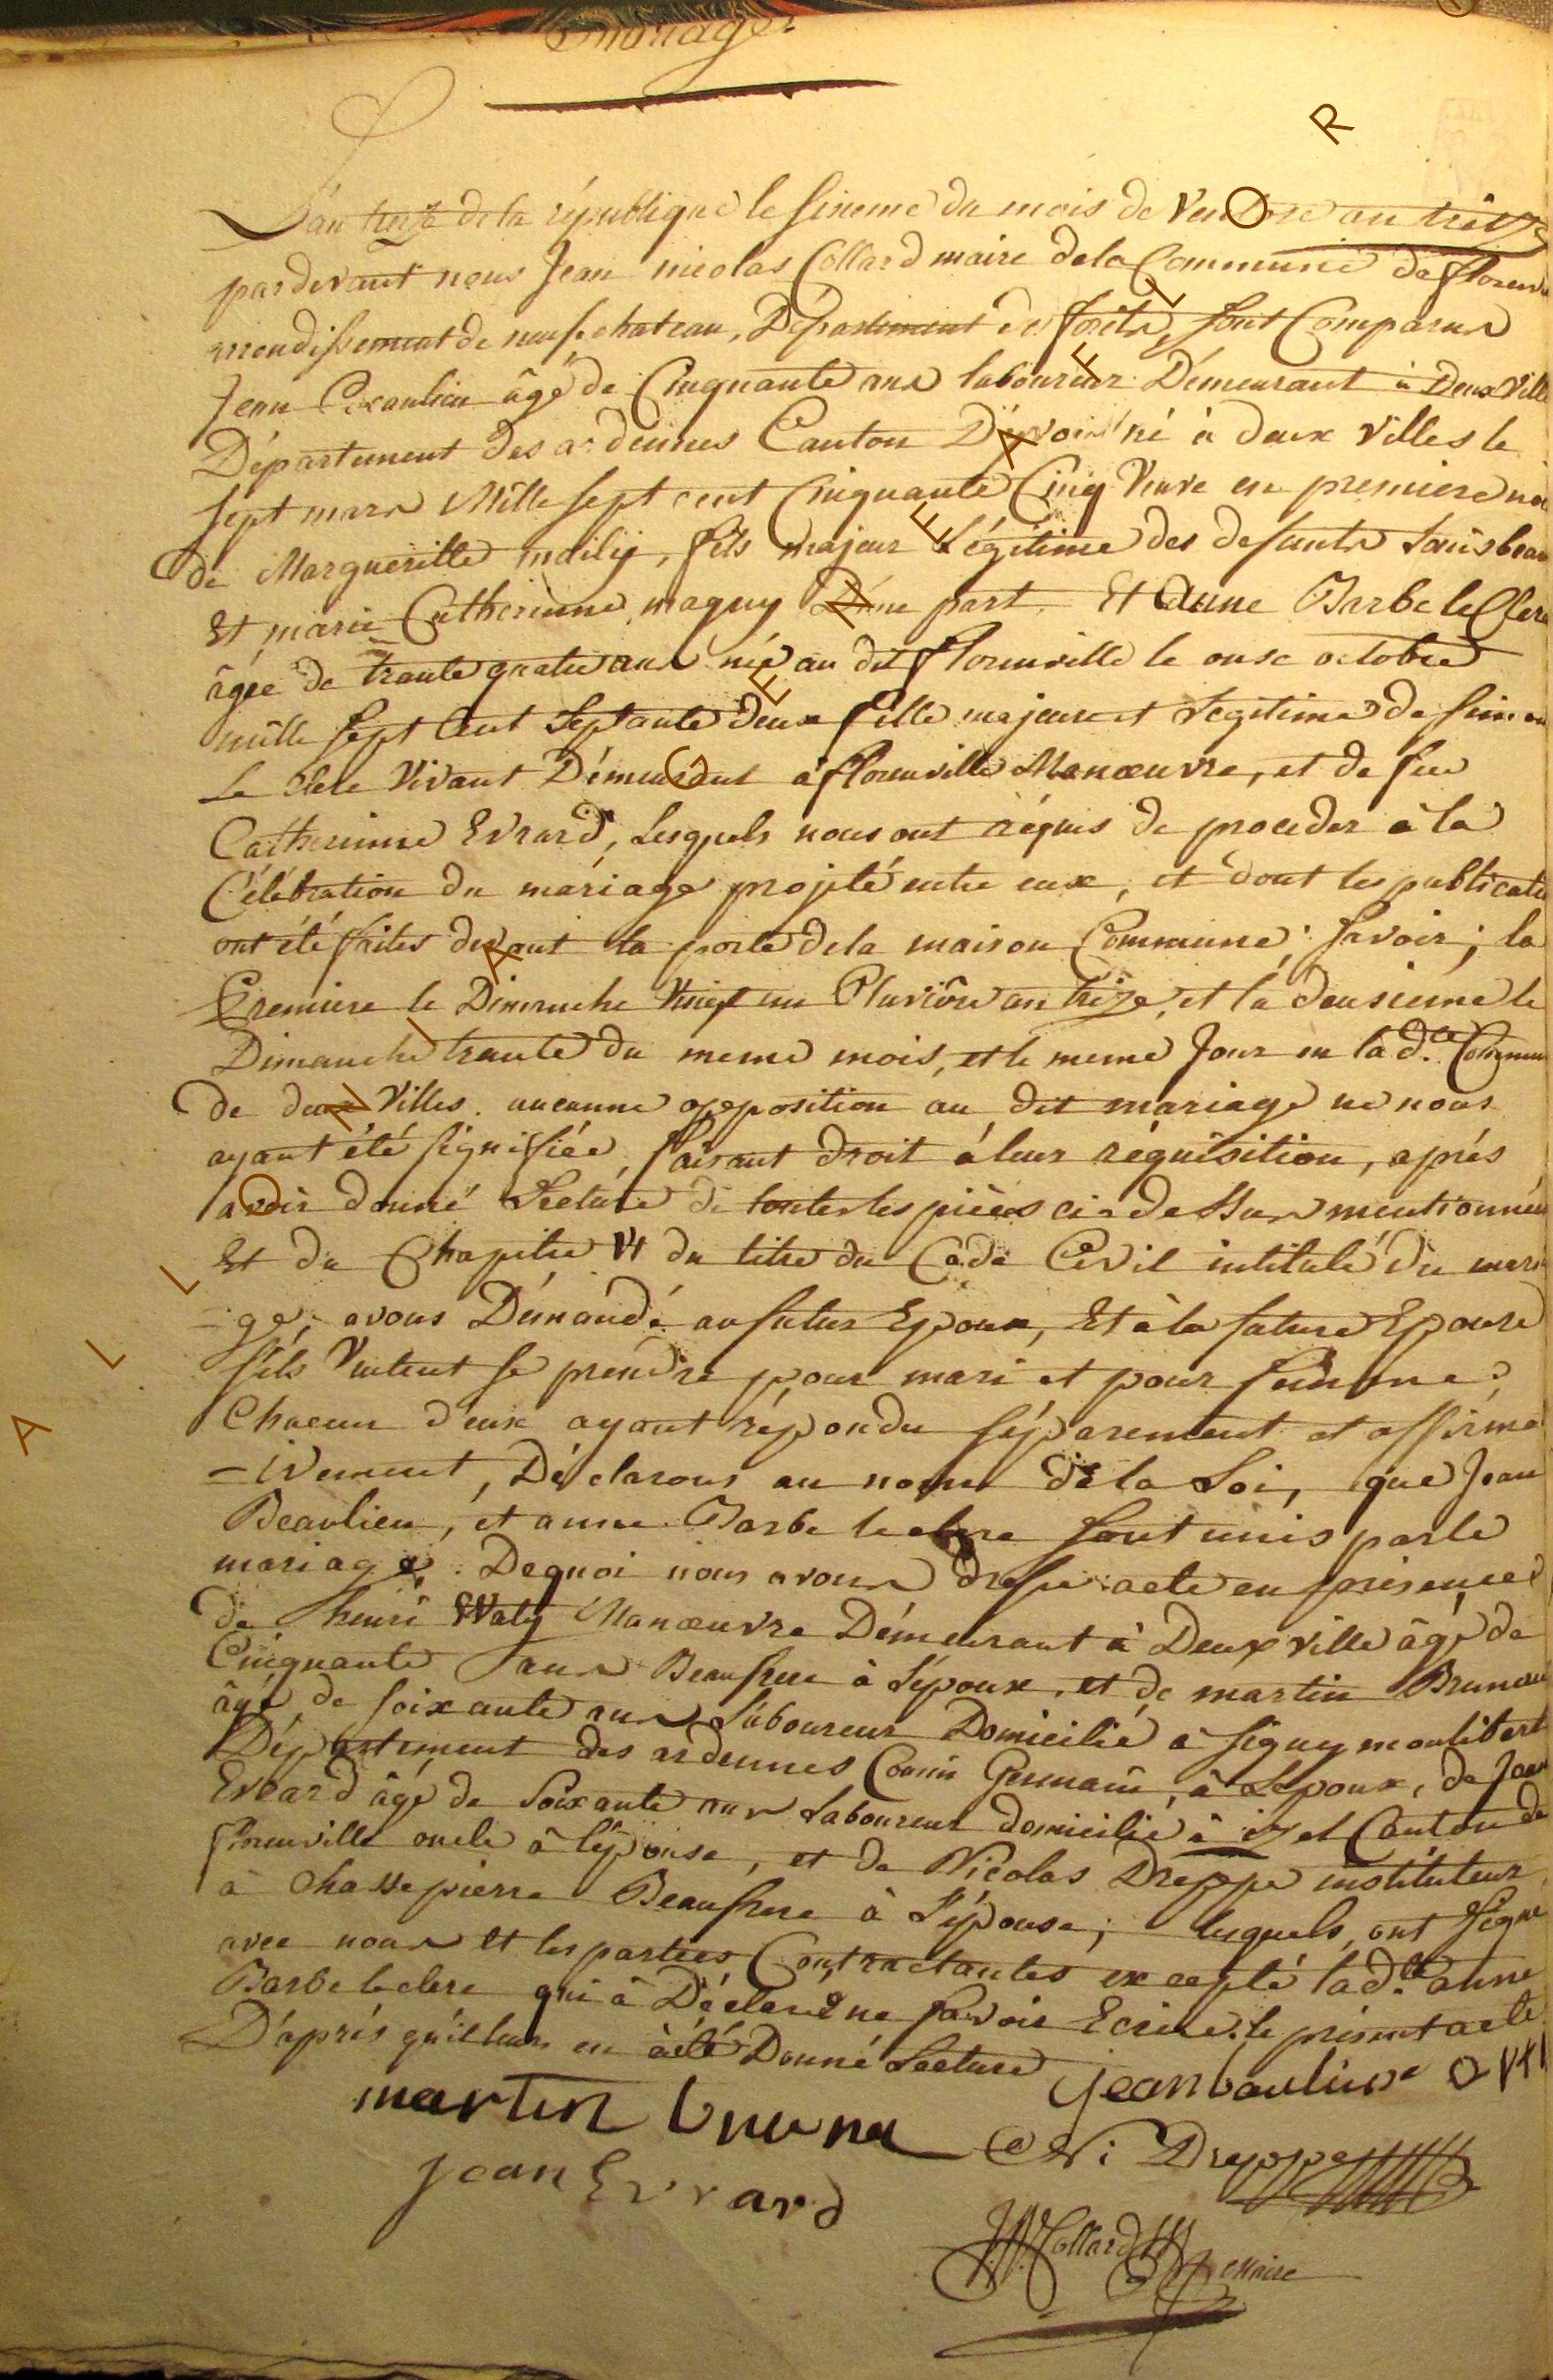 mariage
L'an treize de la république le sixieme du mois de Ventose an treize
pardevant nous Jean nicolas Collard maire de la Commune de florenv
arrondissement de neufchateau, Département des forêts, sont Comparus
Jean Beaulieu âgé de Cinquante ans laboureur Démeurant à Deux Ville
Département des ardennes Canton D' né à deux Villes le
sept mars Mille sept cent Cinquante Cinq Veuve en premiere no
de Marguerille mailij, fils majeur Légitime des defunts beau
Et marie Catherinne maguy D'une part. Et Anne Barbe le Cler
âgée de trante quatre ans née au dit florenville le onse octobre
mille sept Cent Septante deux fille majeure et Legitime de simon
Le clere Vivant Démeurant à florenville Manœuvre, et de feu
Catherinne Evrard, Lesquels nous ont réquis de proceder à la
Célébration du mariage projeté entre eux, et dont les publicati
ont été faites devant la porte de la maison Commune; savoir; la
Premiere le Dimanche Vingt un Pluviôse an treize, et la deusieme le
Dimanche trante du meme mois, et le meme Jour en la d.te Commun
de deux Villes. aucunne opposition au dit mariage ne nous
ayant été signifiée, faisant droit à leur réquisition, aprés
avoir donné Lecture de toutes les pièces ci-dessus mentionnées
Et du Chapitre VI du titre du Code Civil intitulé du maria
-ge, avons Démandé au futur Epoux, Et à la future Epouse
s'ils Veulent se prendre pour mari et pour femme?
Chacun d'eux ayant répondu séparement et affirma
-ivement, Déclarons au nom de la Loi, que Jean
Beaulieu, et anne Barbe le clere sont unis par le
mariage. Dequoi nous avons dressé acte en présence
de henri Waty Manœuvre Démeurant à Deux ville âgé de
Cinquante ans Beaufrere à L'époux, et de martin Bruneau
âgé de soixante ans Laboureur Domicilié a signy montlibert
Département des ardennes Cousin Germain, à Lepoux, de Jean
Evrard âgé de Soixante ans Laboureur domicilié à izel Canton de
florenville oncle à l'épouse, et de Nicolas Dreppe instituteur
à Chassepierre Beaufrere à L'épouse; lesquels ont signe
avec nous Et les parties Contractantes excepté la d.te anne
Barbe leclere qui à Déclaré ne savoir Ecrire, le present acte
D'aprés qu'il leur en à été Donné Lecture
jean baulieux
martin bruna
Ni Dreppe
jean Evrard
JN Collard
maire
ALLONIAGENEAFLOR